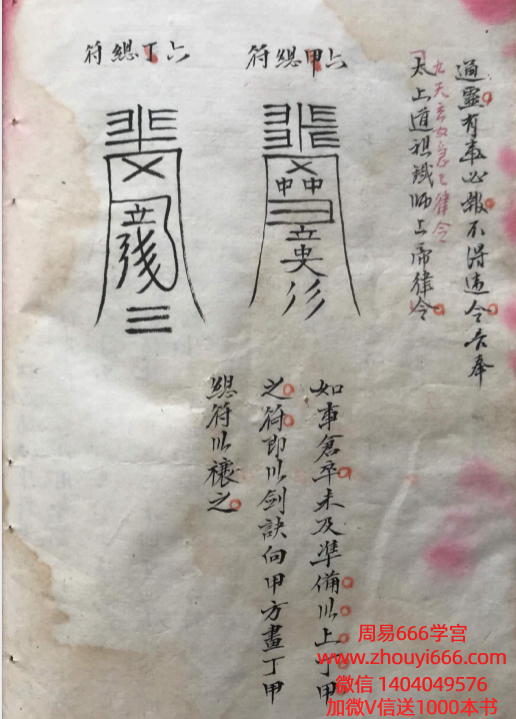 通靈有事必報不得違令吾奉
太上道祖鐵師上帝律令
九天玄女急急律令
六甲總符
六丁總符
如事倉卒未及準備以上丁甲
之符即以劍訣向甲方畫丁甲
總符以禳之
周易666学宫
www.zhouyi666.com
微信 1404049576
加微V信送1000本书